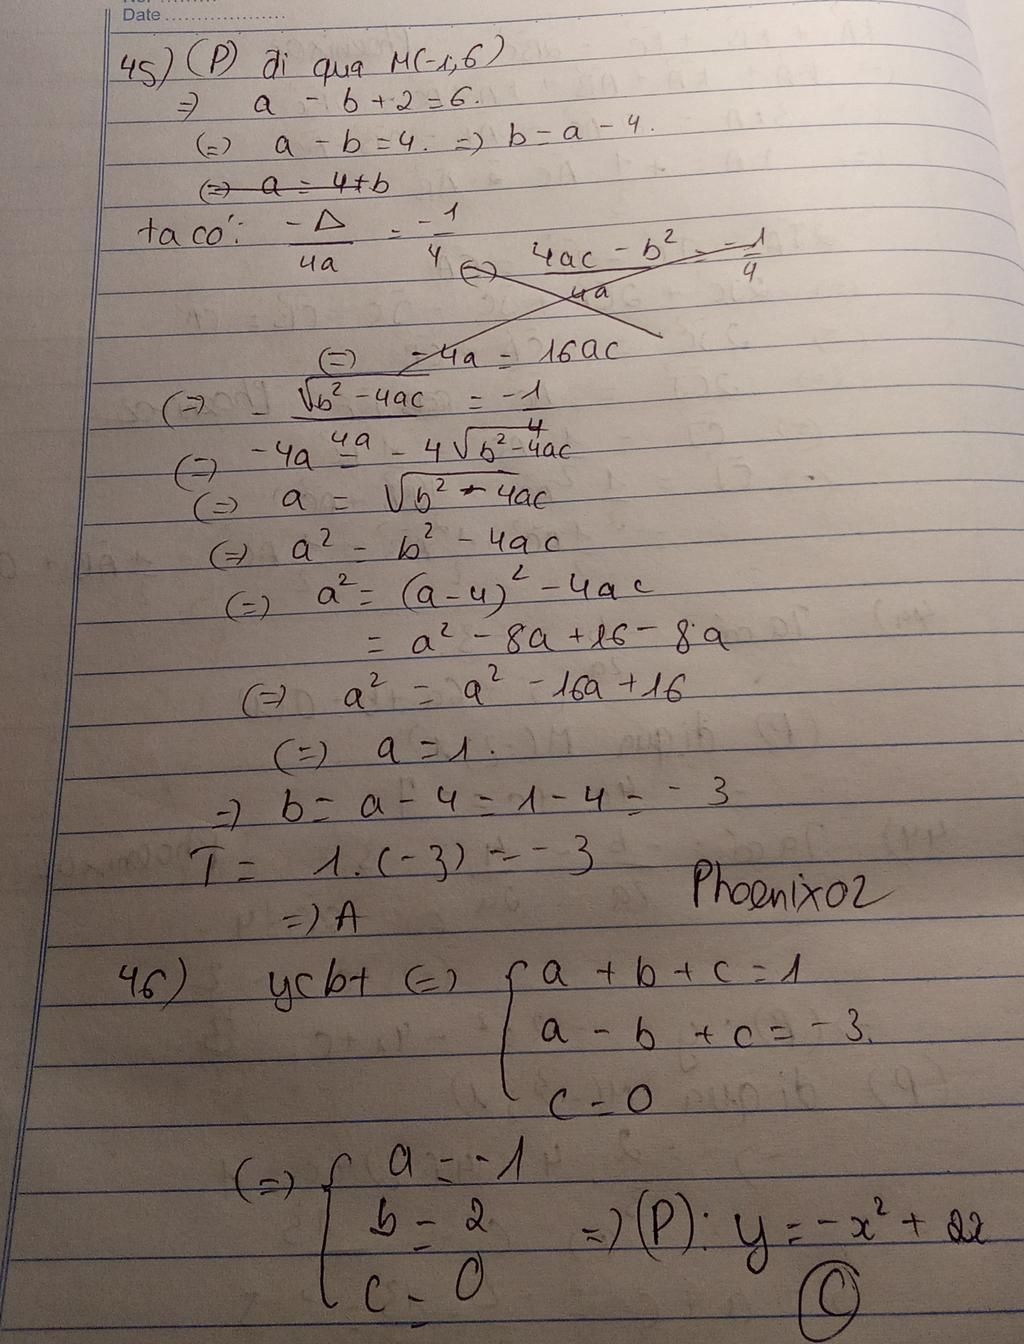 Date
45) (P) đi qua M(-1,6)
=> a - b + 2 = 6.
(=) a - b = 4. => b = a - 4.
(=) a = 4+b
ta có: -Δ/4a = -1/4 (=) 4ac - b²/4a = -1/4
(=) -4a = 16ac
(=) - √b² - 4ac/4a = -1/4
(=) -4a = - 4√b² - 4ac
(=) a = √b² - 4ac
(=) a² = b² - 4ac
(=) a² = (a-4)² - 4ac
= a² - 8a + 16 - 8a
(=) a² = a² - 16a + 16
(=) a = 1.
=> b = a - 4 = 1 - 4 = - 3
T = 1.(-3) = - 3
Phoenix02
=> A
46) ycbt (=) { a + b + c = 1
a - b + c = -3.
c = 0
(=) { a = -1
b = 2 => (P): y = -x² + 2x
c = 0
C